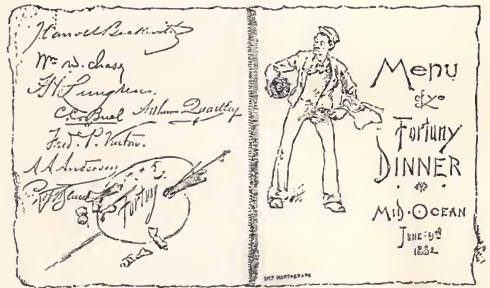 J Carroll Beckwith
Wm M. Chase
C.C. Buel Arthur Quartley
Fred. P. Vinton.
A A Anderson
Fortuny
Menu
&c
Fortuny
DINNER
MID-OCEAN
JUNE 9th
1882